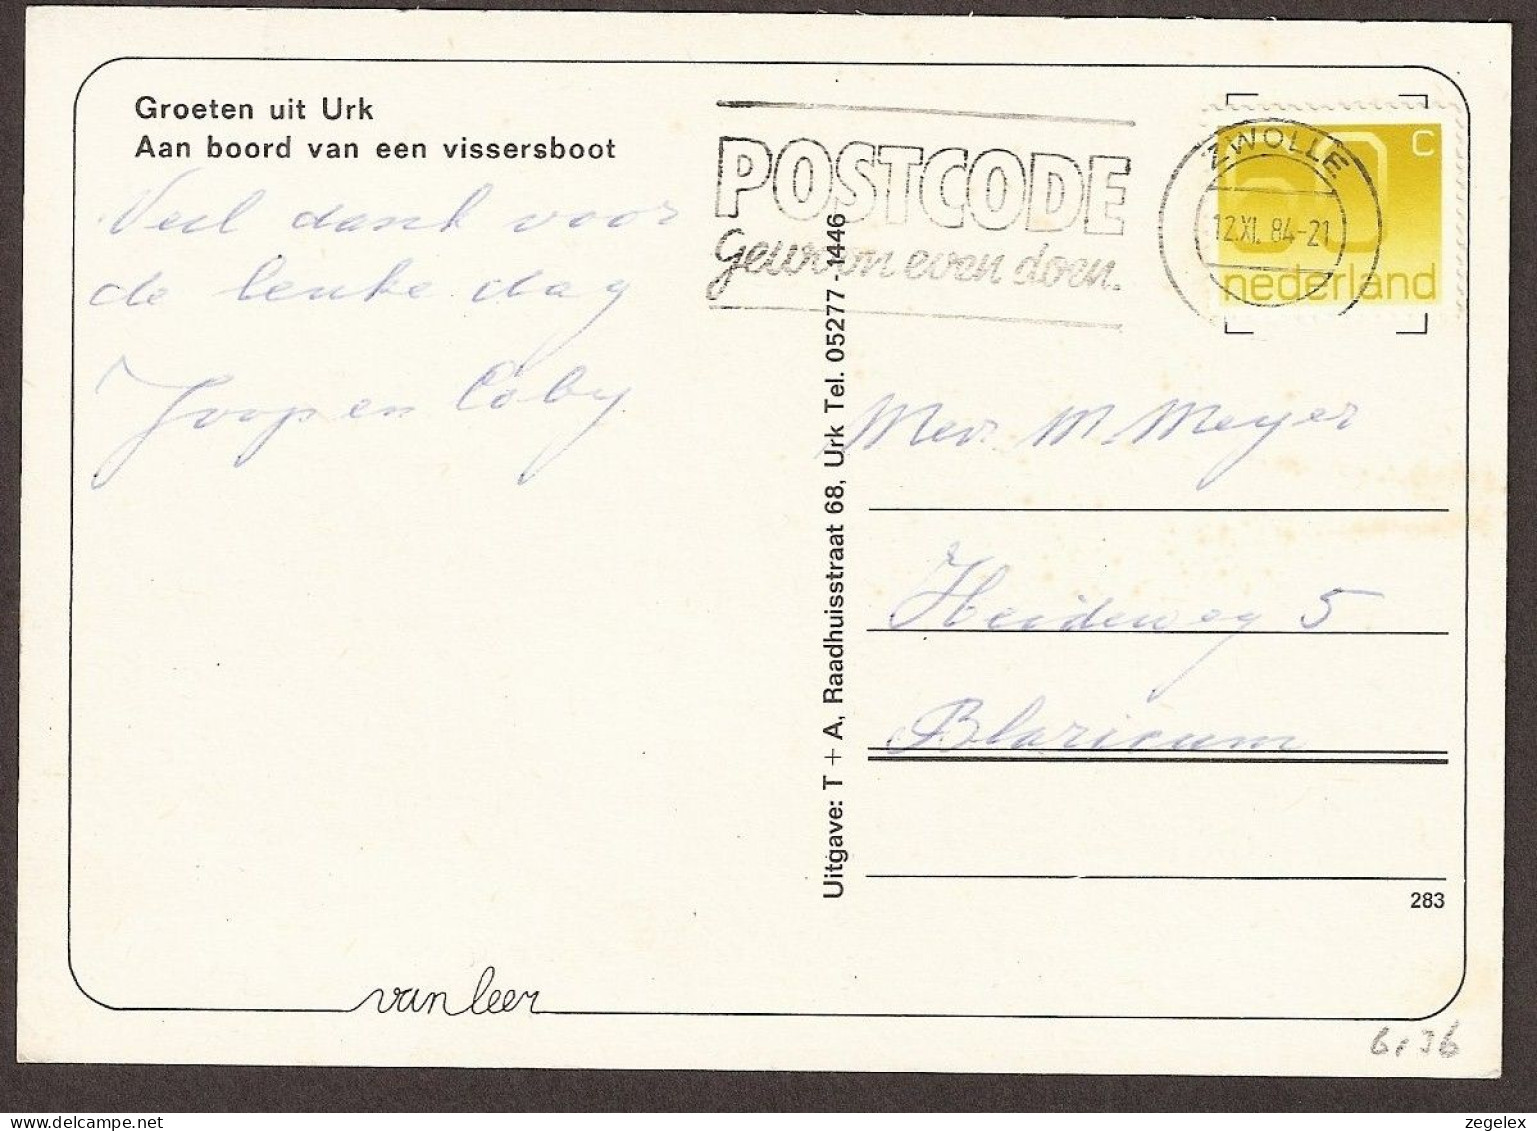 Groeten uit Urk
Aan boord van een vissersboot
Veel dank voor
de leuke dag
Joop en Coby
POSTCODE
gewoon even doen.
ZWOLLE
12.XI.84-21
60 C
nederland
Uitgave: T + A, Raadhuisstraat 68, Urk Tel. 05277 - 1446
Mevr. M. Meyer
Heideweg 5
Blaricum
283
van leer
6,36
delcampe.net
zegelex